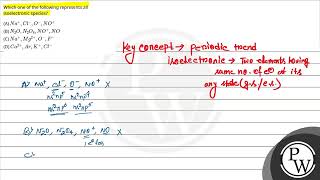 Which one of the following represents all
isoelectronic species?
(A) Na⁺, Cl⁻, O⁻, NO⁺
(B) N₂O, N₂O₄, NO⁺, NO
(C) Na⁺, Mg²⁺, O⁻, F⁻
(D) Ca²⁺, Ar, K⁺, Cl⁻
Key concept → periodic trend
isoelectronic → Two elements having
same no. of e⊖ at its
any state (g.s/e.s)
A) Na⁺, Cl⁻, O⁻, NO⁺ X
B) N₂O, N₂O₄, NO⁺, NO X
1 e⊖ loss
C)
PW